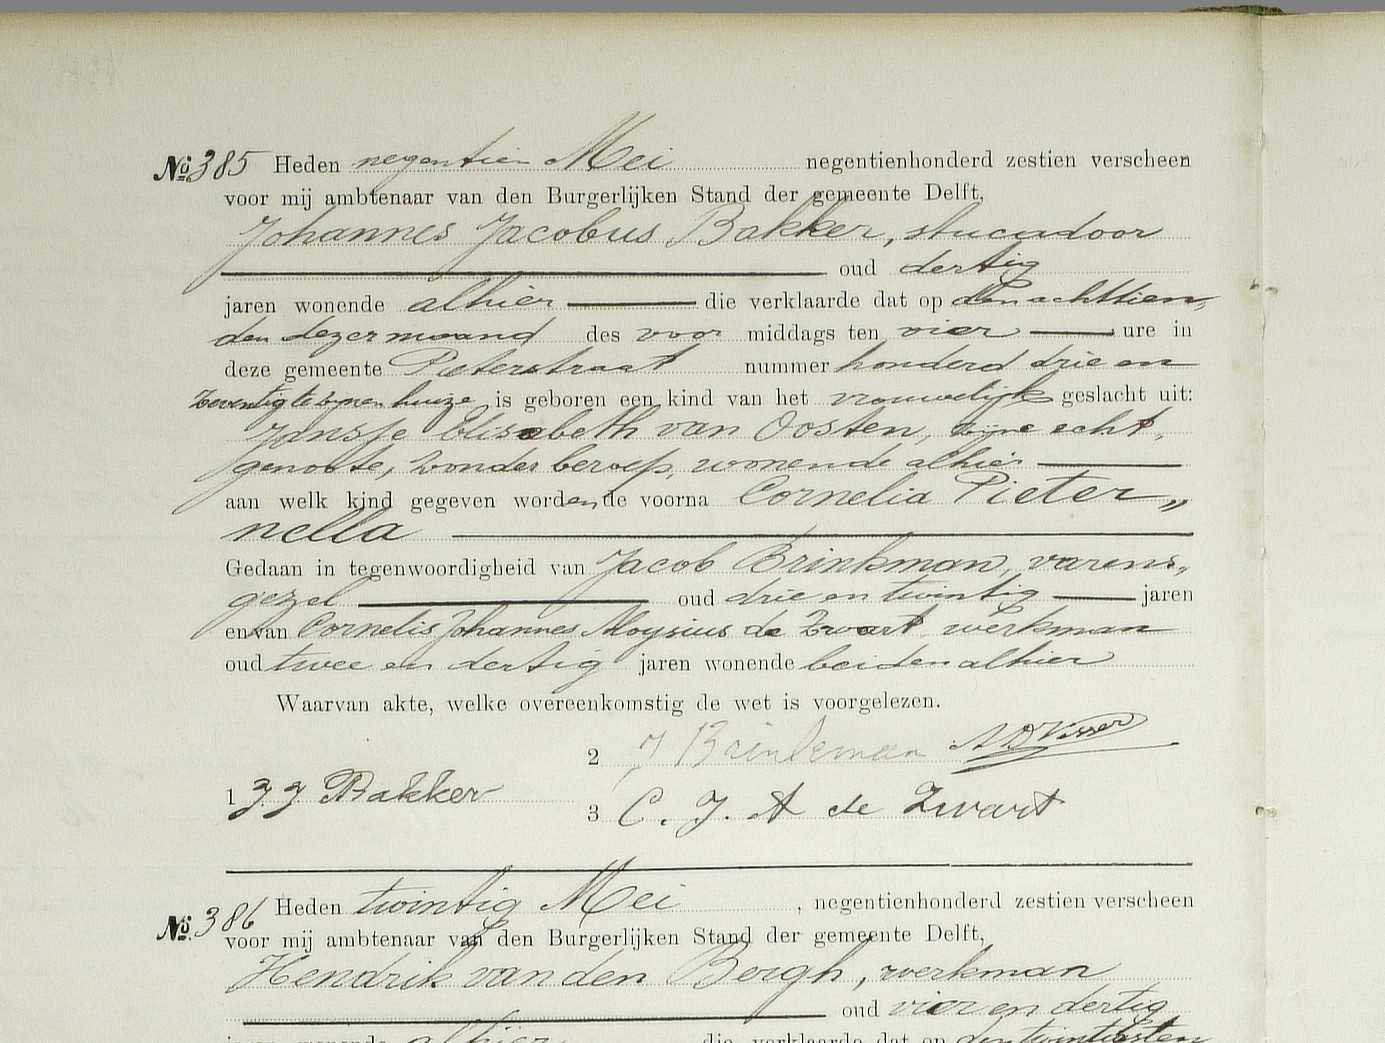 No 385 Heden negentien Mei negentienhonderd zestien verscheen
voor mij ambtenaar van den Burgerlijken Stand der gemeente Delft,
Johannes Jacobus Bakker, stucadoor
oud dertig
jaren wonende alhier die verklaarde dat op den achttien,
den dezer maand des voor middags ten vier ure in
deze gemeente Pieterstraat nummer honderd drie en
zeventig te zijnen huize is geboren een kind van het vrouwelijk geslacht uit:
Jansje Elisabeth van Oosten, zijne echt,
genoote, zonder beroep, wonende alhier
aan welk kind gegeven worden de voorna Cornelia Pieter„
nella
Gedaan in tegenwoordigheid van Jacob Brinkman, varens„
gezel oud drie en twintig jaren
en van Cornelis Johannes Aloysius de Zwart, werkman
oud twee en dertig jaren wonende beiden alhier
Waarvan akte, welke overeenkomstig de wet is voorgelezen.
2 J Brinkman Visser
1 J J Bakker
3 C. J. A de Zwart
No. 386 Heden twintig Mei , negentienhonderd zestien verscheen
voor mij ambtenaar van den Burgerlijken Stand der gemeente Delft,
Hendrik van den Bergh, werkman
oud vier en dertig
jaren wonende alhier die verklaarde dat op den twintigsten